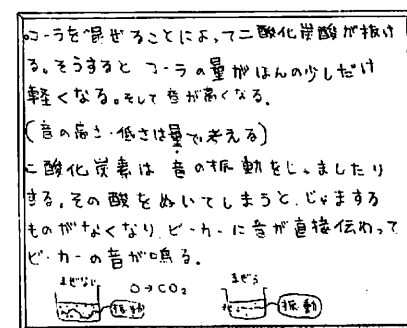 ○コーラを混ぜることによって二酸化炭酸が抜け
る。そうすると コーラの量がほんの少しだけ
軽くなる。そして音が高くなる。
(音の高さ・低さは量で考える)
二酸化炭素は 音の振動をじゃましたり
する。その酸をぬいてしまうと、じゃまする
ものがなくなり、ビーカーに音が直接伝わって
ビーカーの音が鳴る。
まぜない ○→CO₂ まぜる
振動 振動